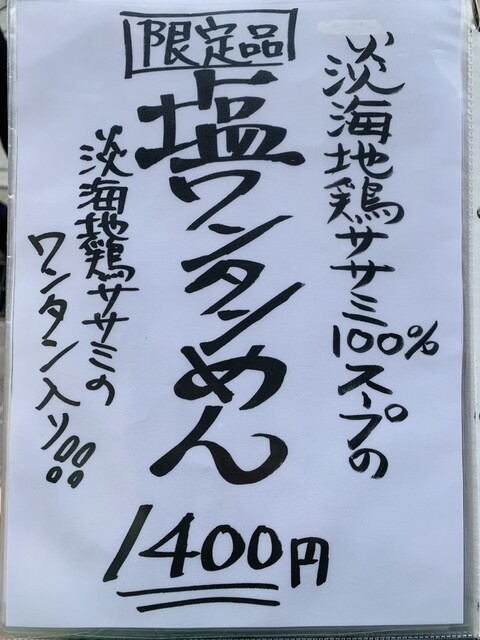 限定品
淡海地鶏ササミ100%スープの
塩ワンタンめん
淡海地鶏ササミの
ワンタン入り!!
1400円